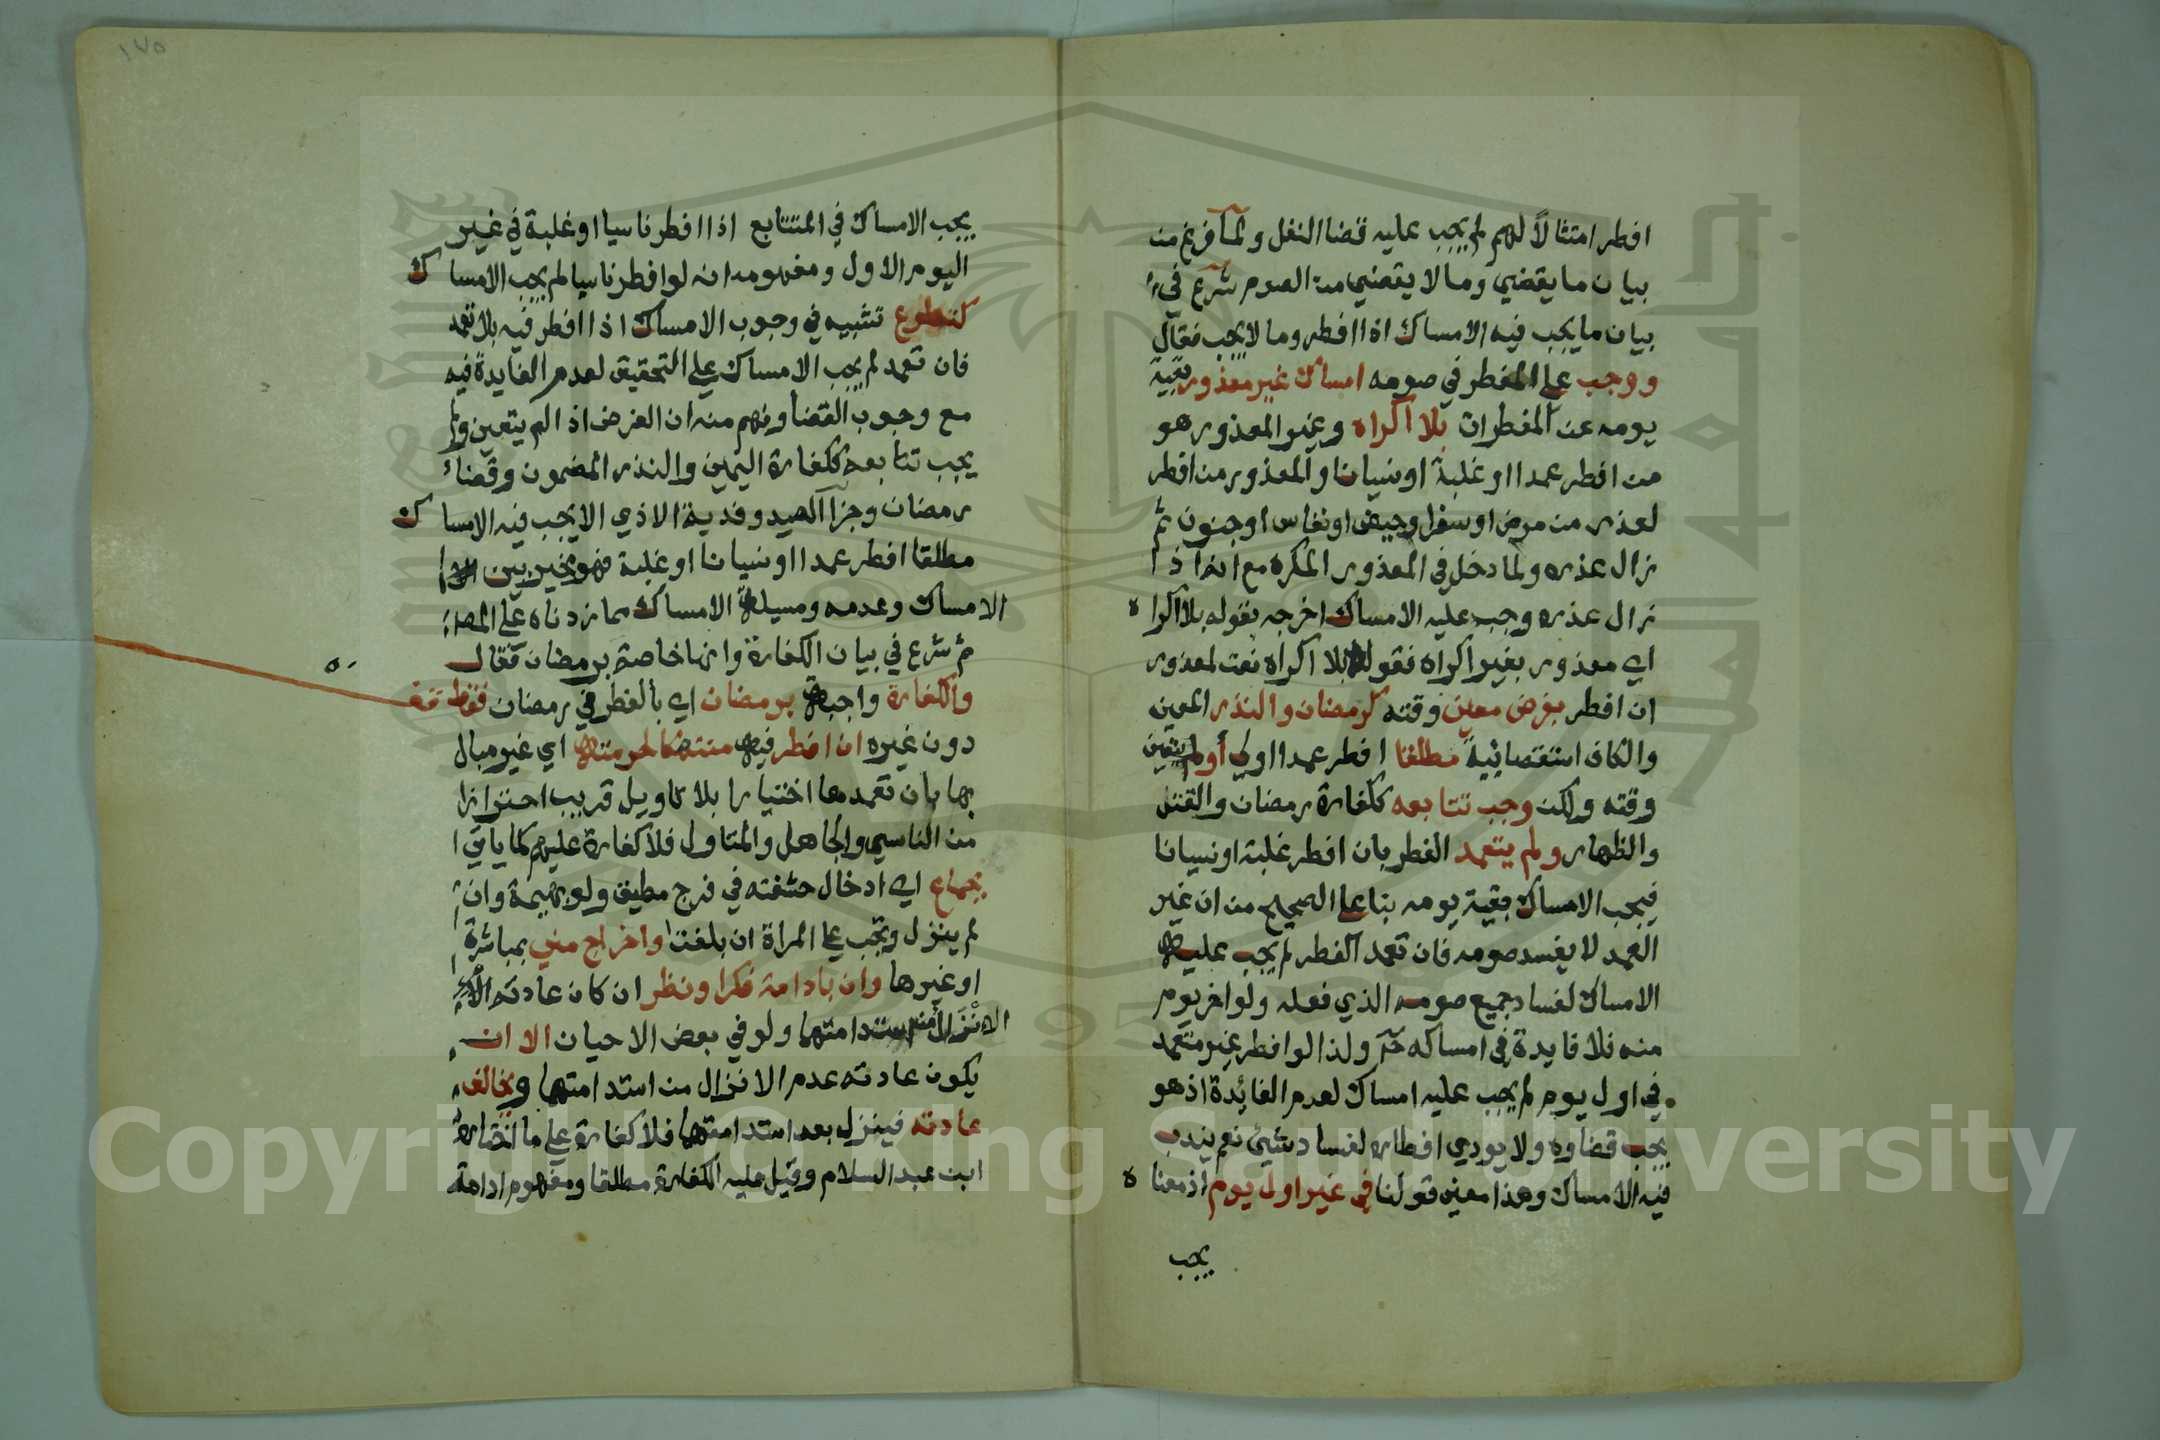 افطر امتثالا لهم لم يجب عليه قضا النفل ولما فرغ من
بيان ما يقضي وما لا يقضي من الصوم شرع في
بيان ما يجب فيه الامساك اذا افطر وما لا يجب فقال
ووجب على المفطر في صومه امساك غير معذور بقية
يومه عن المفطرات بلا اكراه وغير المعذور هو
من افطر عمدا او غلبة او نسيانا والمعذور من افطر
لعذر من مرض او سفر او حيض او نفاس او جنون ثم
زال عذره ولما دخل في المعذور المكره مع انه اذا
زال عذره وجب عليه الامساك اخرجه بقوله بلا اكراه
اي معذور بغير اكراه فقوله بلا اكراه نعت لمعذور
ان افطر بفرض معين وقته كرمضان والنذر المعين
والكاف استقصائية مطلقا افطر عمدا اولي أو لم يتعين
وقته ولكن وجب تتابعه ككفارة رمضان والقتل
والظهار ولم يتعمد الفطر بان افطر غلبة او نسيانا
فيجب الامساك بقية يومه بنا على الصحيح من ان غير
العمد لا يفسد صومه فان تعمد الفطر لم يجب عليه
الامساك لفساد جميع صومه الذي فعله ولو اخر يوم
منه فلا فايدة في امساكه ولذا لو افطر غير متعمد
في اول يوم لم يجب عليه امساك لعدم الفائدة اذ هو
يجب قضاوه ولا يودي افطاره لفساد شيئ نعم يندب
فيه الامساك وهذا معني قولنا في غير اول يوم اذ معناه
يجب
١٧٥
يجب الامساك في المتتابع اذا افطر ناسيا او غلبة في غير
اليوم الاول ومفهومه انه لو افطر ناسيا لم يجب الامساك
كتطوع تشبيه في وجوب الامساك اذا افطر فيه بلا تعمد
فان تعمد لم يجب الامساك على التحقيق لعدم الفايدة فيه
مع وجوب القضا وفهم منه ان الفرض اذا لم يتعين ولم
يجب تتابعه ككفارة اليمين والنذر المضمون وقضاء
رمضان وجزا الصيد وفدية الاذي لا يجب فيه الامساك
مطلقا افطر عمدا او نسيانا او غلبة فهو مخير بين
الامساك وعدمه ومسيلة الامساك مما زدناه على المص
ثم شرع في بيان الكفارة وانها خاصة برمضان فقال
والكفارة واجبة برمضان اي بالفطر في رمضان فقط قف
دون غيره ان افطر فيه منتهكا لحرمته اي غير مبال
بها بان تعمدها اختيارا بلا تاويل قريب احترازا
من الناسي والجاهل والمتاول فلا كفارة عليهم كما ياتي
بجماع اي ادخال حشفته في فرج مطيق ولو بهيمة وان
لم ينزل وتجب على المراة ان بلغت واخراج مني بمباشرة
او غيرها وان بادامة فكر او نظر ان كان عادته
الانزال من استدامتهما ولو في بعض الاحيان الا ان
يكون عادته عدم الانزال من استدامتهما ويخالف
عادته فينزل بعد استدامتهما فلا كفارة على ما اختاره
ابن عبد السلام وقيل عليه الكفارة مطلقا ومفهوم ادامة
Copyright © King Saud University